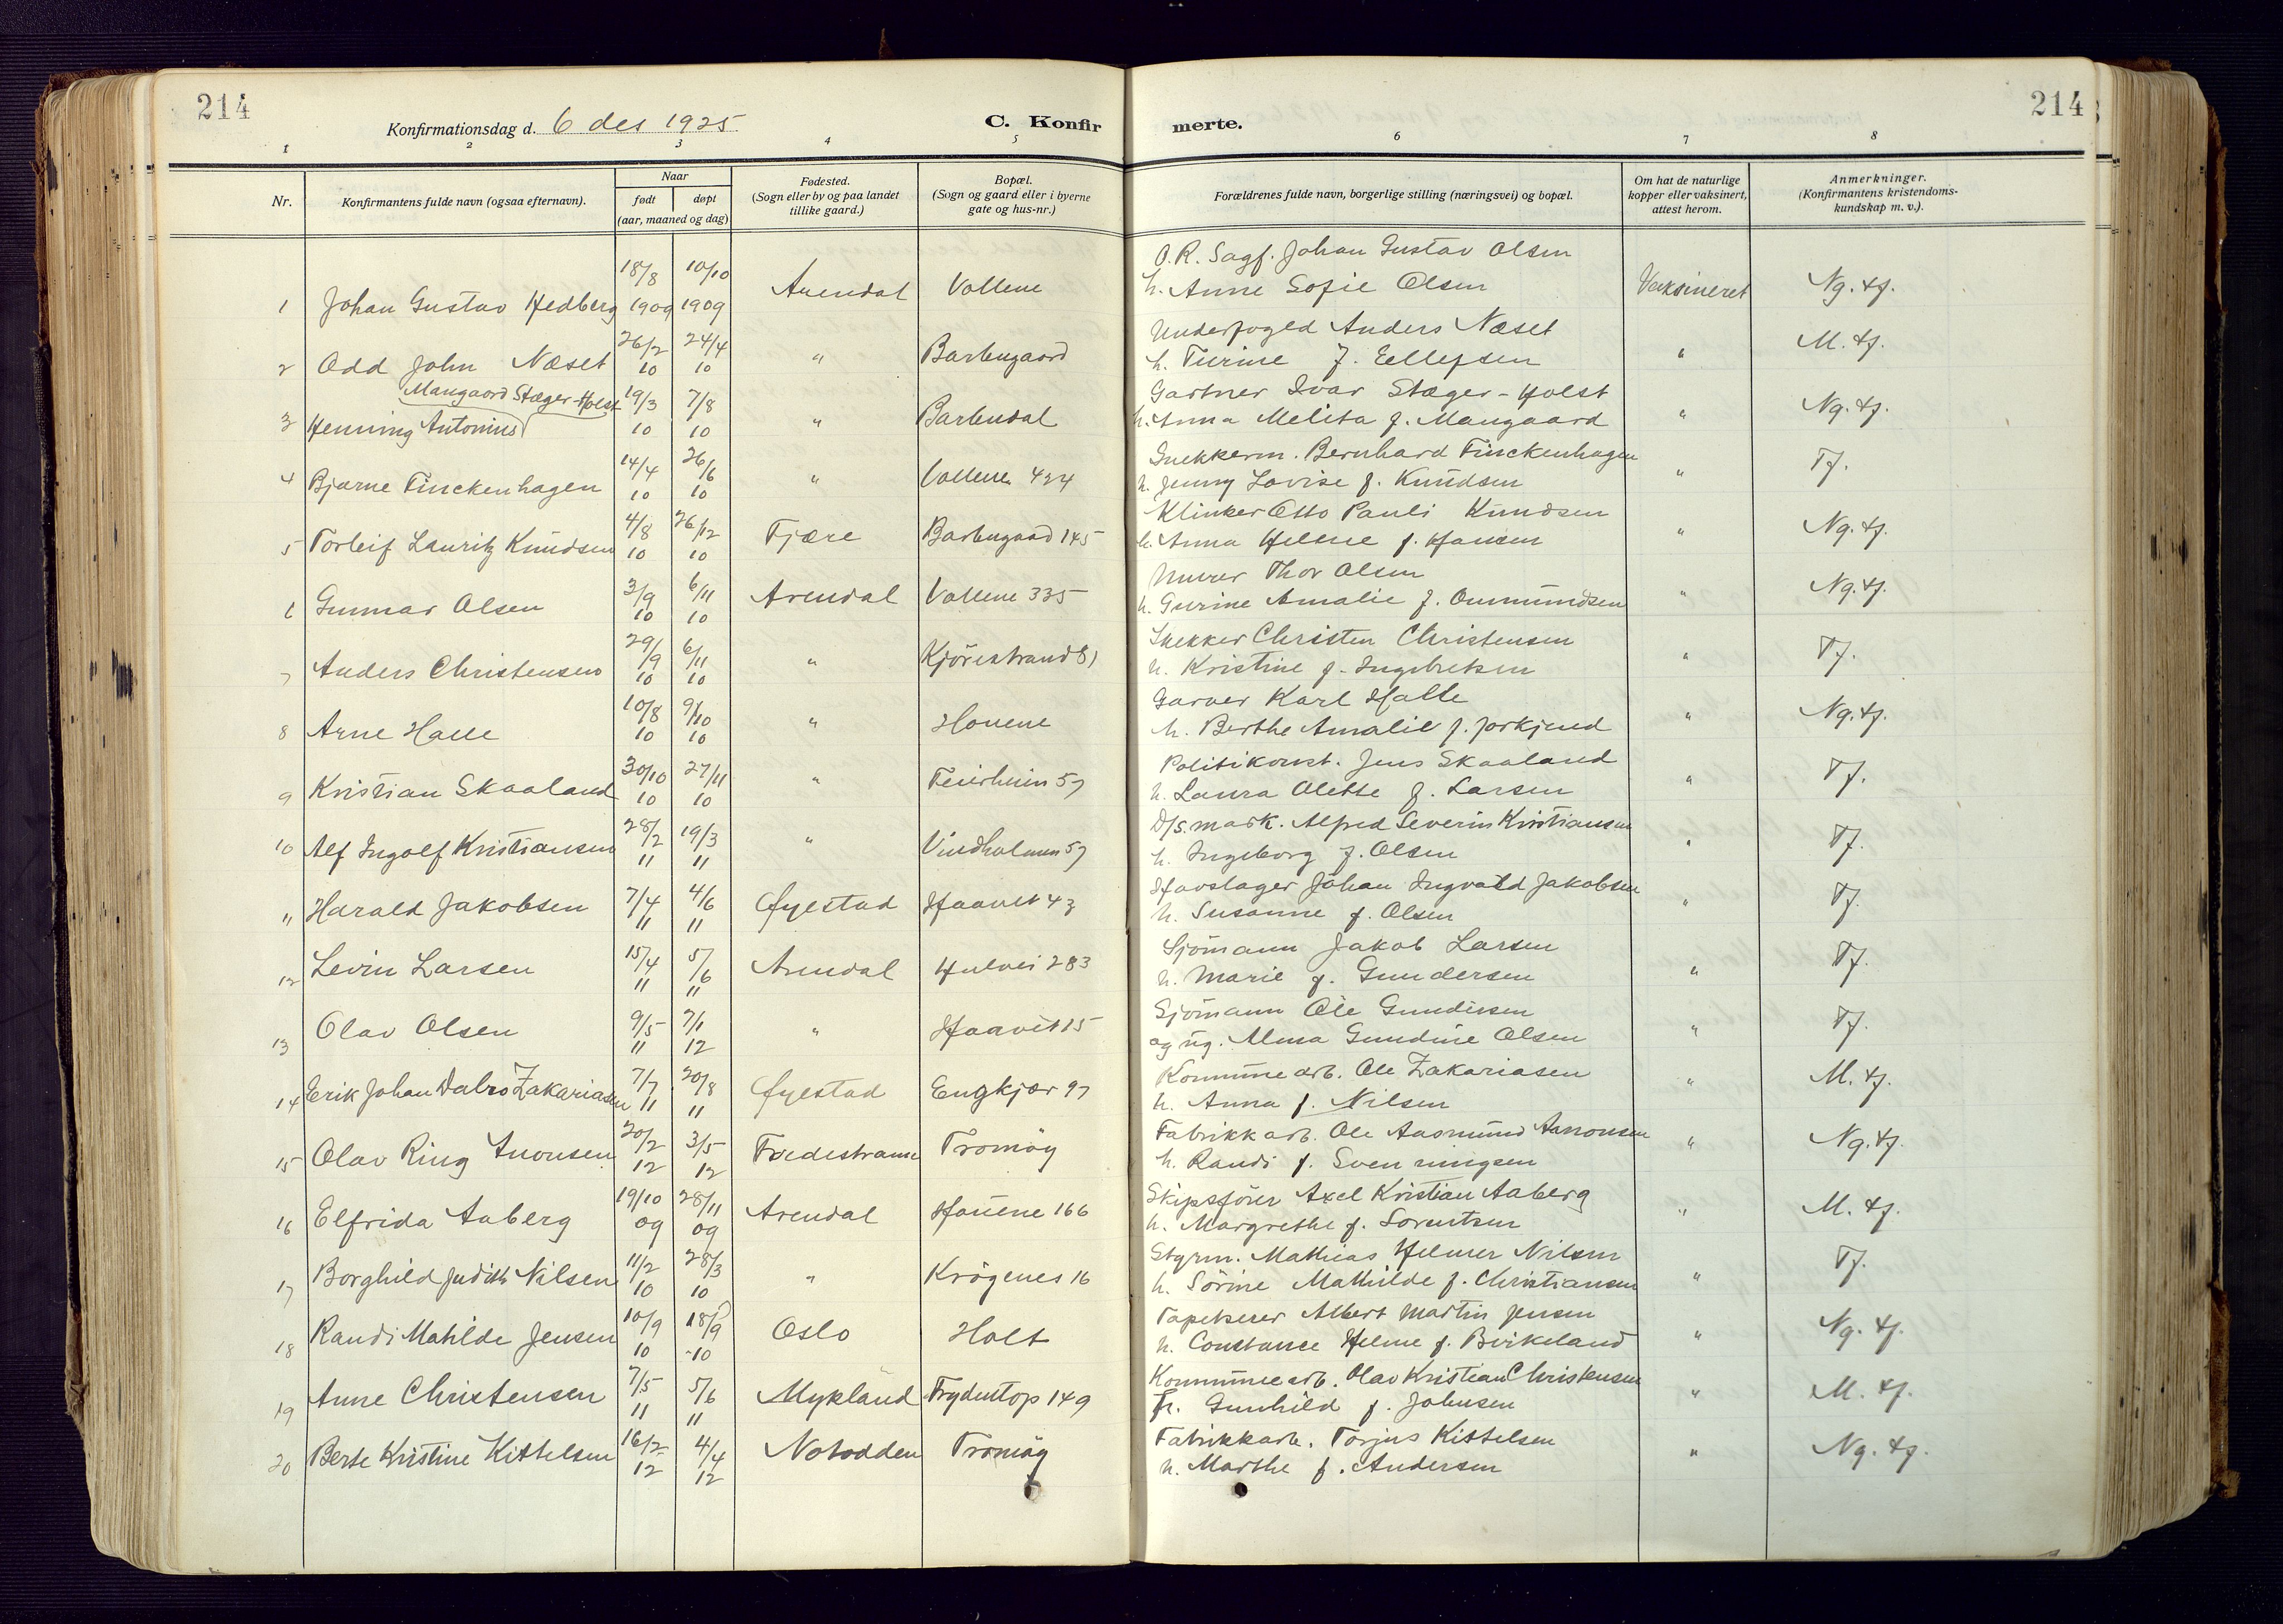 214
214
Konfirmationsdag d. 6 des 1925
C. Konfirmerte.
1 2 3 4 5 6 7 8
Nr.
Konfirmantens fulde navn (ogsaa efternavn).
Naar
født
døpt
(aar, maaned og dag)
Fødested.
(Sogn eller by og paa landet
tillike gaard.)
Bopæl.
(Sogn og gaard eller i byerne
gate og hus-nr.)
Forældrenes fulde navn, borgerlige stilling (næringsvei) og bopæl.
Om hat de naturlige
kopper eller vaksinert,
attest herom.
Anmerkninger.
(Konfirmantens kristendoms-
kundskap m. v.).
18/8 10/10 O.R. Sagf. Johan Gustav Olsen
1 Johan Gustav Hedberg 1909 1909 Arendal Vollene h. Anne Sofie Olsen Vaksineret Ng. tf.
26/2 24/4 Underfoged Anders Næset
2 Odd John Næset 10 10 " Barbugaard h. Turine f. Ellefsen " M. tf.
Mangaard Stæger-Holst 19/3 7/8 Gartner Ivar Stæger-Holst
3 Henning Antonius 10 10 " Barbudal h. Anna Melita f. Mangaard " Ng. tf.
14/4 26/6 Snekkerm. Bernhard Finckenhagen
4 Bjarne Finckenhagen 10 10 " Vollene 424 h. Jenny Lovise f. Knudsen " Tf.
4/8 26/12 Klinker Otto Pauli Knudsen
5 Torleif Lauritz Knudsen 10 10 Fjære Barbugaard 145 h. Anna Helene f. Hansen " Ng. tf.
3/9 6/11 Murer Thor Olsen
6 Gunnar Olsen 10 10 Arendal Vollene 335 h. Gurine Amalie f. Oumundsen " Ng. tf.
29/9 6/11 Snekker Christen Christensen
7 Anders Christensen 10 10 " Kjörestrand 81 h. Kristine f. Ingebretsen " Tf.
10/8 9/10 Garver Karl Halle
8 Arne Halle 10 10 " Houene h. Berthe Amalie f. Jorkjend " Ng. tf.
30/10 27/11 Politikonst. Jens Skaaland
9 Kristian Skaaland 10 10 " Feierheim 57 h. Laura Olette f. Larsen " Tf.
28/2 19/3 D/s. mask. Alfred Severin Kristiansen
10 Alf Ingolf Kristiansen 11 11 " Vindholmen 57 h. Ingeborg f. Olsen " Tf.
7/4 4/6 Hovslager Johan Ingvald Jakobsen
11 Harald Jakobsen 11 11 Øyestad Haavet 43 h. Susanne f. Olsen " Tf.
15/4 5/6 Sjömann Jakob Larsen
12 Levin Larsen 11 11 Arendal Hulvei 283 h. Marie f. Gundersen " Tf.
9/5 7/1 Sjömann Ole Gundersen
13 Olav Olsen 11 12 " Haavet 15 og ug. Alma Gundine Olsen " Tf.
7/7 20/8 Kommunearb. Ole Zakariasen
14 Erik Johan Dalro Zakariasen 11 11 Øyestad Engkjær 97 h. Anna f. Nilsen " M. tf.
20/2 3/5 Fabrikkarb. Ole Aasmund Aanonsen
15 Olav Ring Anonsen 12 12 Tvedestrand Tromöy h. Randi f. Svenningsen " Ng. tf.
19/10 28/11 Skipsförer Axel Kristian Aaberg
16 Elfrida Aaberg 09 09 Arendal Houene 166 h. Margrethe f. Sorentsen " M. tf.
11/2 28/3 Styrm. Mathias Helmer Nilsen
17 Borghild Judith Nilsen 10 10 " Krögenes 16 h. Sörine Mathilde f. Christiansen " Tf.
10/9 18/9 Tapetserer Albert Martin Jensen
18 Randi Matilde Jensen 10 10 Oslo Holt h. Constance Helene f. Birkeland " Ng. tf.
7/5 5/6 Kommunearb. Olav Kristian Christensen
19 Anne Christensen 11 11 Mykland Frydentop 149 h. Gunhild f. Johnsen " M. tf.
16/2 4/4 Fabrikkarb. Torjus Kittelsen
20 Berte Kristine Kittelsen 12 12 Notodden Tromöy h. Marthe f. Andersen " Ng. tf.